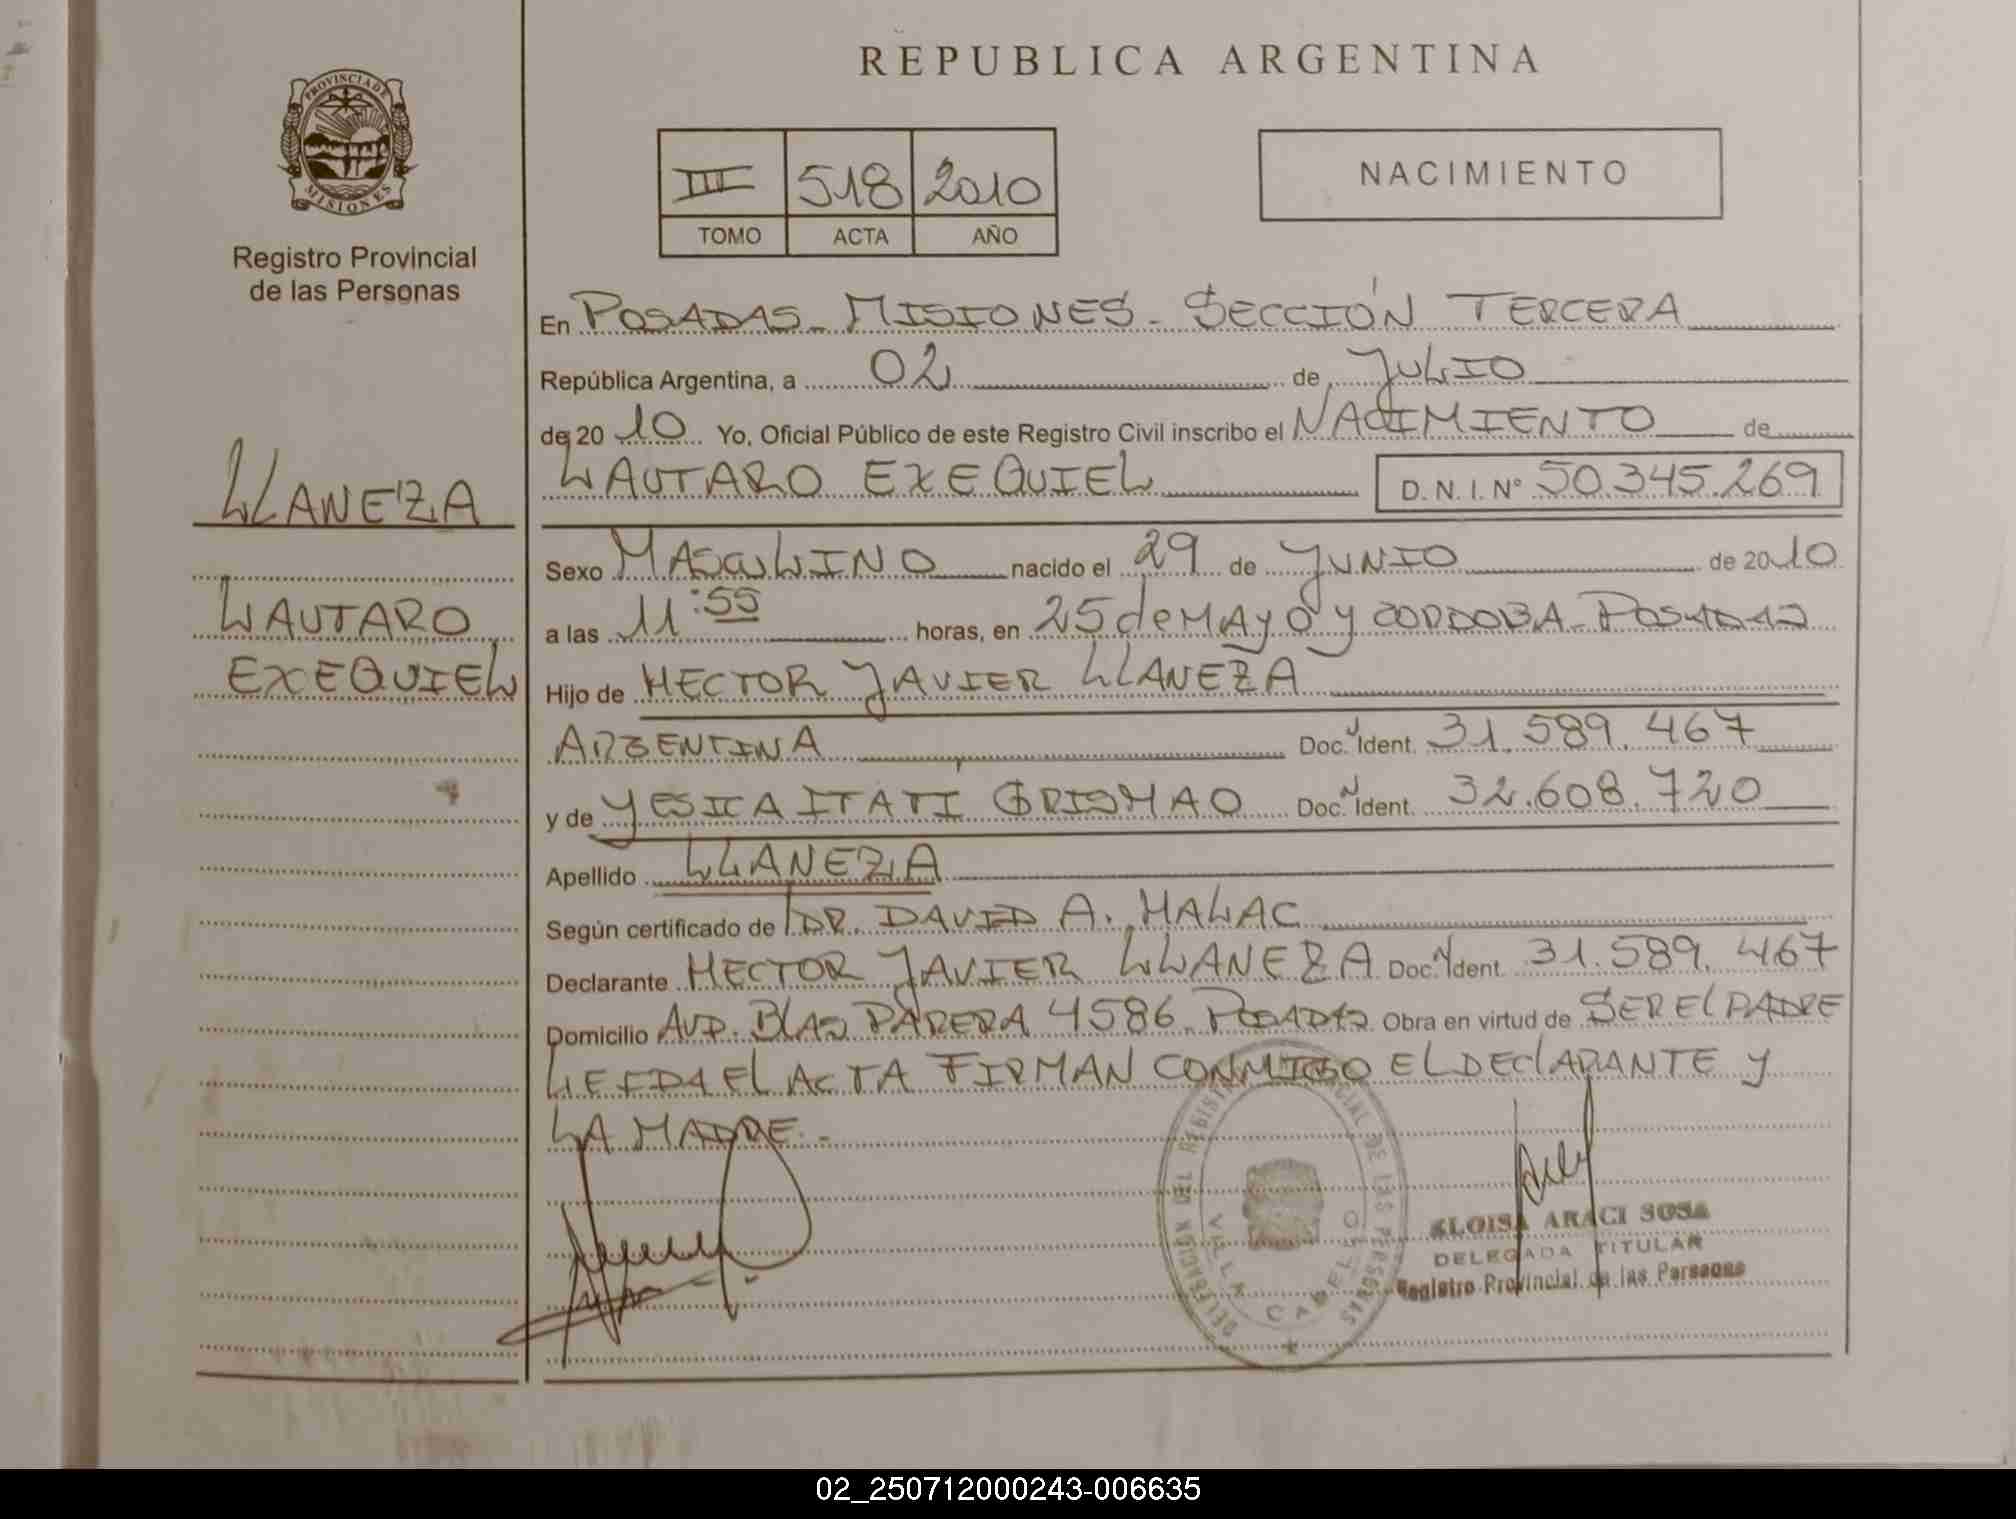 REPUBLICA ARGENTINA
PROVINCIA DE MISIONES
Registro Provincial
de las Personas
III 518 2010
TOMO ACTA AÑO
NACIMIENTO
LLANEZA
LAUTARO
EXEQUIEL
En POSADAS - MISIONES - SECCIÓN TERCERA
República Argentina, a 02 de JULIO
de 20 10 Yo, Oficial Público de este Registro Civil inscribo el NACIMIENTO de
LAUTARO EXEQUIEL D.N.I. Nº 50.345.269
Sexo MASCULINO nacido el 29 de JUNIO de 2010
a las 11:55 horas, en 25 de MAYO y CORDOBA - POSADAS
Hijo de HECTOR JAVIER LLANEZA
ARGENTINA Doc. Ident. 31.589.467
y de YESICA ITATÍ GRISMAO Doc. Ident. 32.608.720
Apellido LLANEZA
Según certificado de DR. DAVID A. MALAC
Declarante HECTOR JAVIER LLANEZA Doc. Ident. 31.589.467
Domicilio AVD. BLAS PARERA 4586 POSADAS Obra en virtud de SER EL PADRE
LEIDA EL ACTA FIRMAN CONMIGO EL DECLARANTE Y
LA MADRE.-
DELEGACIÓN DEL REGISTRO PROVINCIAL DE LAS PERSONAS
VILLA CABELLO
ELOISA ARACI SOSA
DELEGADA TITULAR
Registro Provincial de las Personas
02_250712000243-006635